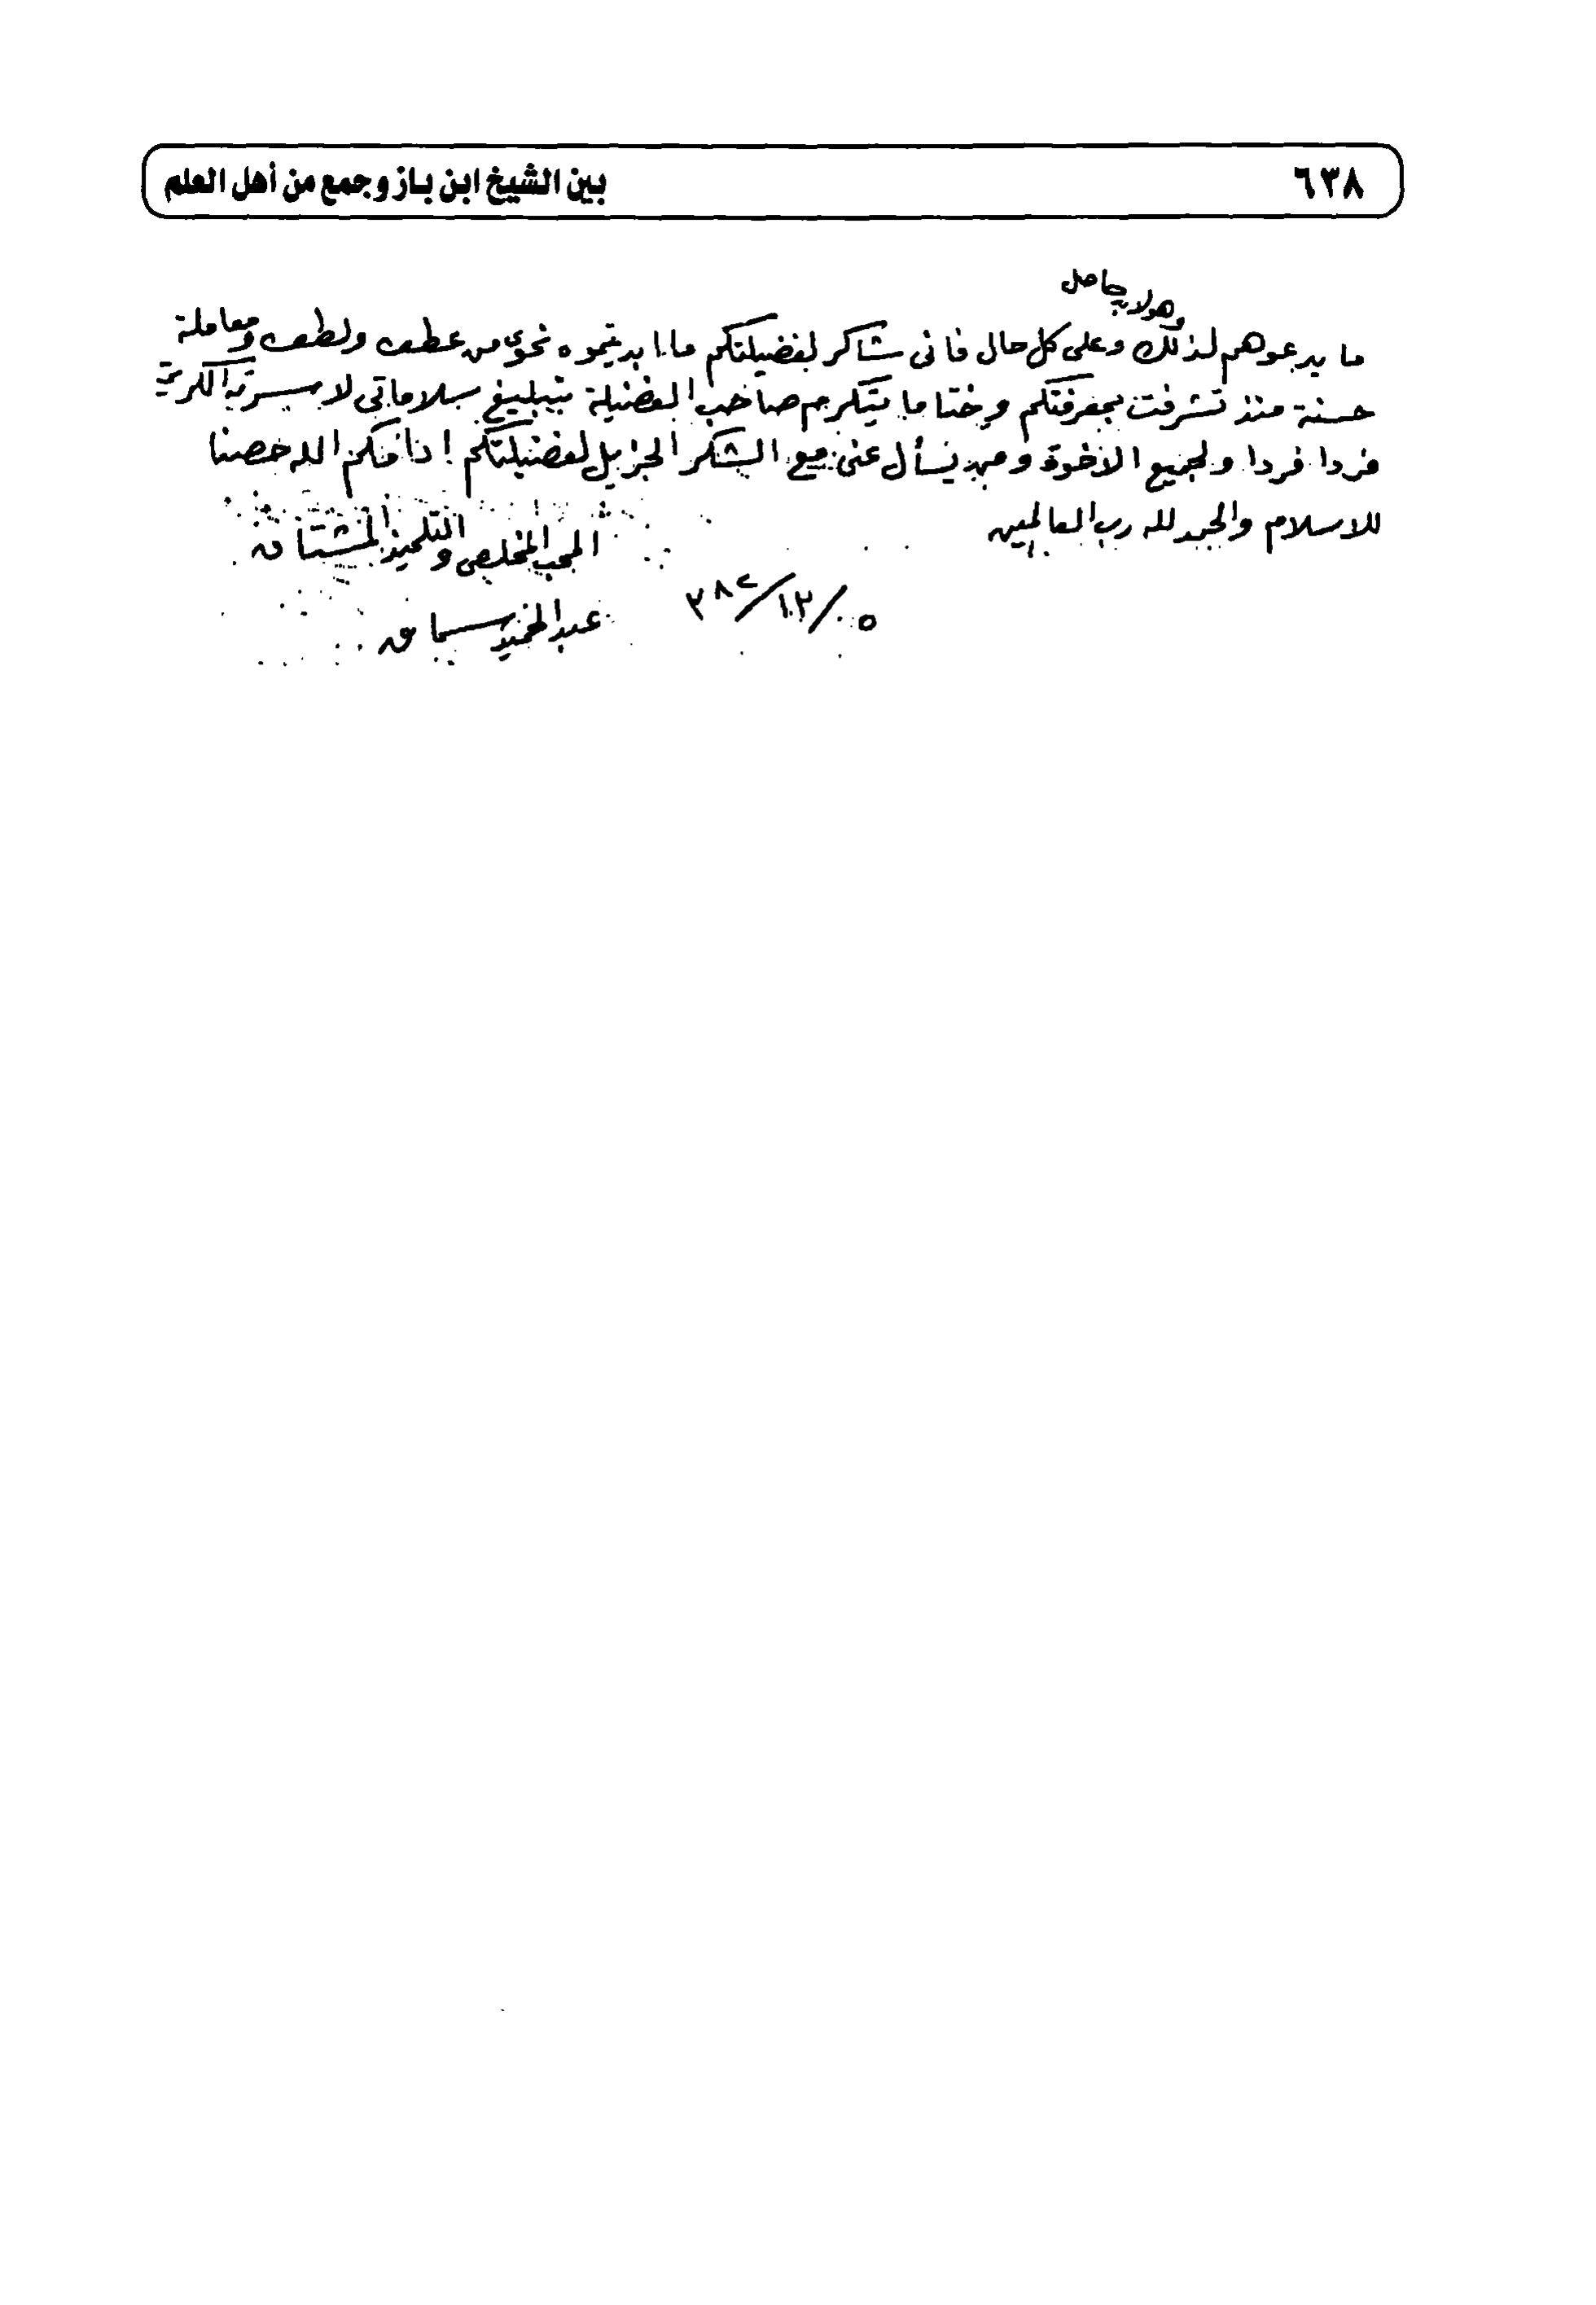 ٦٣٨
بين الشيخ ابن باز وجمع من أهل العلم
وهو لا يجامل
ما يدعوهم لذلك وعلى كل حال فانى شاكر لفضيلتكم ما ابديتموه نحوى من عطف ولطف ومعاملة
حسنة منذ تشرفت بمعرفتكم وختاما يتكرم صاحب الفضيلة بتبليغ سلاماتى لاسرته الكريمة
فردا فردا ولجميع الاخوة ومن يسأل عنى مع الشكر الجزيل لفضيلتكم الله
للاسلام والحمد لله رب العالمين
المحب المخلص والتلميذ المشتاق
عبد الحميد